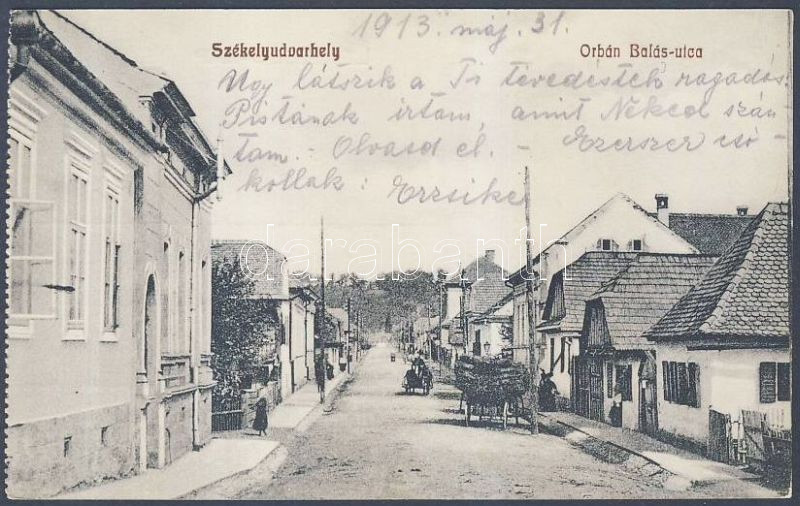 1913. máj. 31.
Székelyudvarhely
Orbán Balás-utca
Ugy látszik a Ti tévedéstek ragadós.
Pistának irtam, amit Néked szán-
tam. - Olvasd el. - Ezerszer csó-
kollak: Erzsike
darabanth